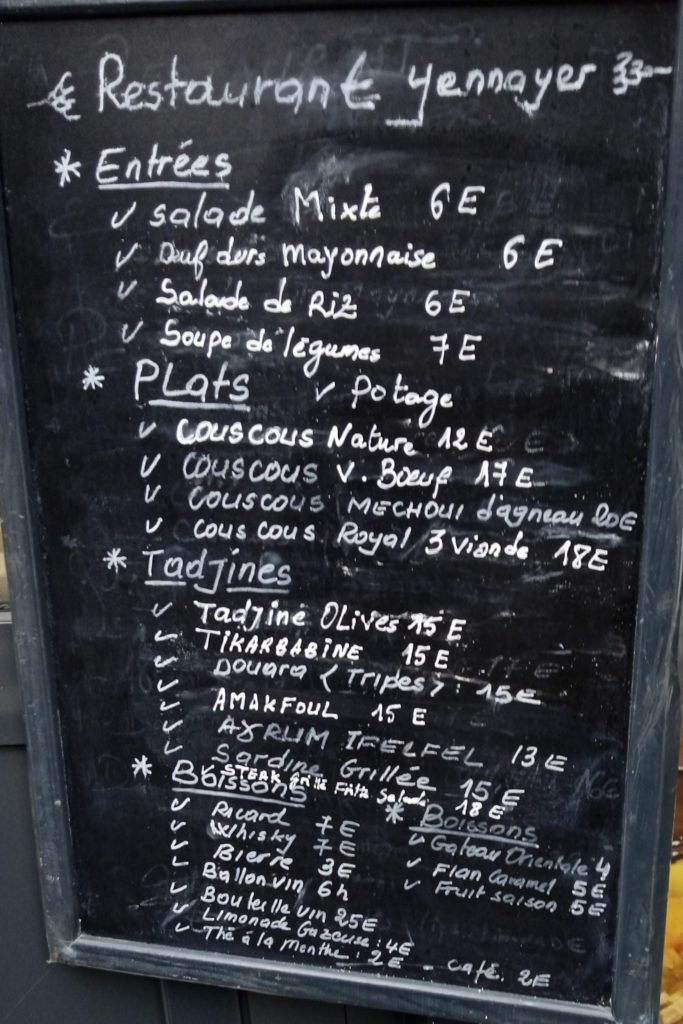 Restaurant Yennayer
* Entrées
✓ Salade Mixte 6E
✓ Œuf durs mayonnaise 6E
✓ Salade de Riz 6E
✓ Soupe de légumes 7E
* PLats ✓ Potage
✓ COUSCOUS Nature 12E
✓ COUSCOUS V. Bœuf 17E
✓ COUSCOUS MECHOUI d'agneau 20E
✓ COUSCOUS Royal 3 Viande 18E
* Tadjines
✓ Tadjine OLives 15E
✓ TIKARBABINE 15E
✓ DOUARA <Tripes> : 15E
✓ AMAKFOUL 15E
✓ AYRUM IFELFEL 13E
✓ Sardine Grillée 15E
✓ STEAK Grillé Frite Salade 18E
* Boissons
✓ Ricard 7E
✓ Whisky 7E
✓ Bierre 3E
✓ Ballon vin 6h
✓ Bouteille vin 25E
✓ Limonade Gazeuse : 4E
✓ Thé à la Menthe : 2E - café. 2E
* Boissons
✓ Gateau Orientale 4
✓ Flan Caramel 5E
✓ Fruit saison 5E